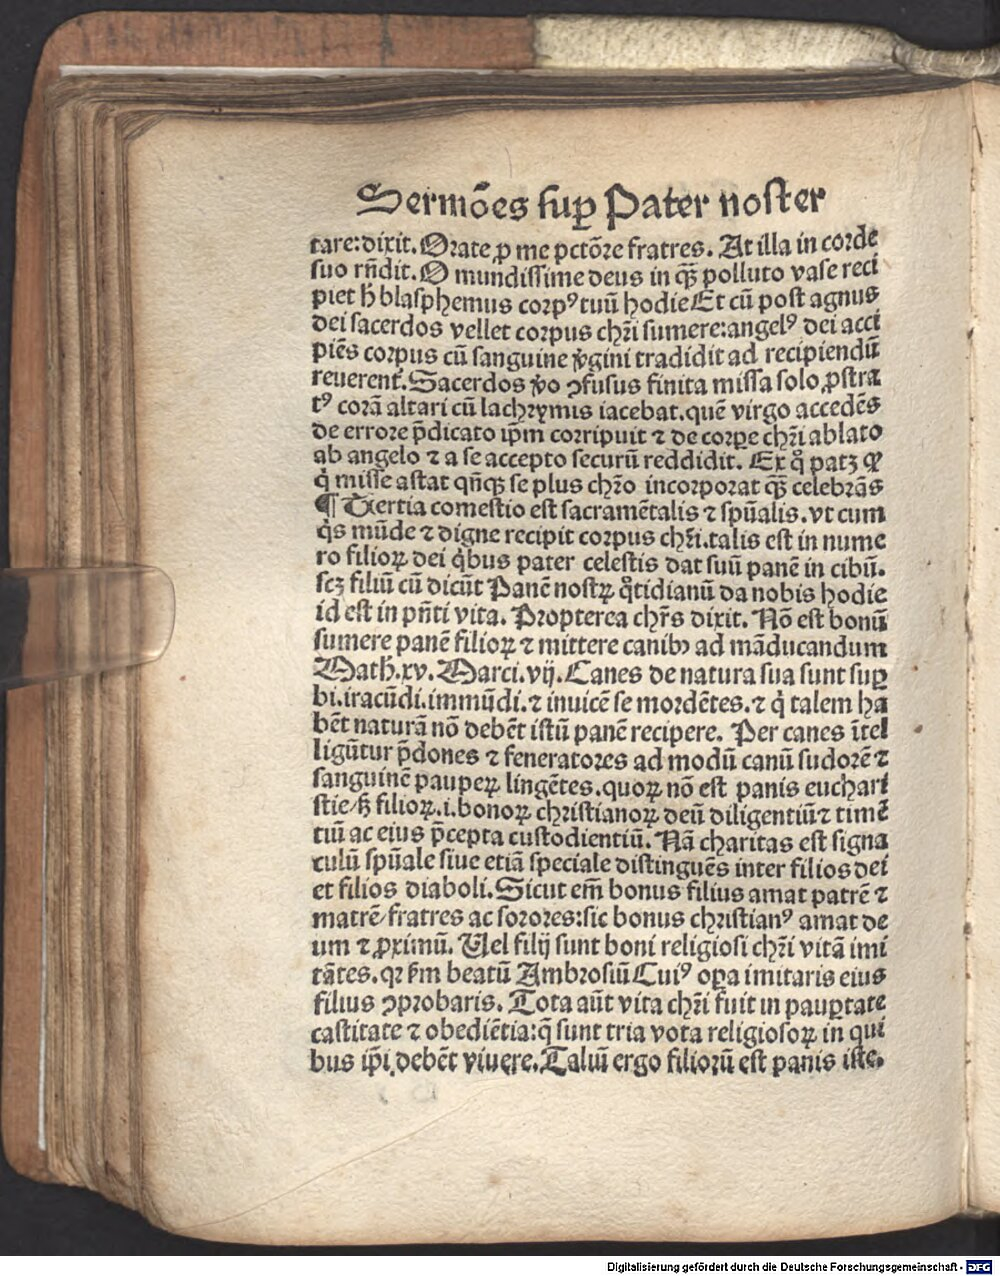 Sermões sup Pater noster
tare:dixit. Orate ꝓ me pctōre fratres. At illa in corde
suo rñdit. O mundissime deus in qȝ̄ polluto vase reci
piet h̄ blasphemus corpꝰ tuū hodie Et cū post agnus
dei sacerdos vellet corpus chr̄i sumere:angelꝰ dei acci
piēs corpus cū sanguine v̓gini tradidit ad recipiendū
reuerent̓. Sacerdos v̓o ꝯfusus finita missa solo ꝓstra
tꝰ corā altari cū lachrymis iacebat.quē virgo accedēs
de errore p̄dicato ip̄m corripuit ⁊ de corꝑe chr̄i ablato
ab angelo ⁊ a se accepto securū reddidit. Ex q̊ patꝫ ꝙ
q̇ misse astat qñqꝫ se plus chr̄o incorporat qȝ̄ celebrās
¶ Tertia comestio est sacramētalis ⁊ spūalis. vt cum
q̇s mūde ⁊ digne recipit corpus chr̄i.talis est in nume
ro filioꝝ dei q̇bus pater celestis dat suū panē in cibū.
scꝫ filiū cū dicūt Panē nostꝝ q̊tidianū da nobis hodie
id est in pn̄ti vita. Propterea chr̄s dixit. Nō est bonū
sumere panē filioꝝ ⁊ mittere canibꝰ ad māducandum
Math̄.xv. Marci.vij. Canes de natura sua sunt suꝑ
bi.iracūdi.immūdi.⁊ inuicē se mordētes.⁊ q̇ talem ha
bēt naturā nō debēt istū panē recipere. Per canes ītel
ligūtur p̄dones ⁊ feneratores ad modū canū sudorē ⁊
sanguinē pauperꝝ lingētes.quoꝝ nō est panis euchari
stie/sꝫ filioꝝ.i.bonoꝝ christianoꝝ deū diligentiū⁊ timē
tiū ac eius p̄cepta custodientiū. Nā charitas est signa
culū spūale siue etiā speciale distinguēs inter filios dei
et filios diaboli. Sicut em̄ bonus filius amat patrē ⁊
matrē/fratres ac sorores:sic bonus christianꝰ amat de
um ⁊ ꝓximū. Uel filij sunt boni religiosi chr̄i vitā imi
tātes.qꝛ s̄m beatū Ambrosiū Cuiꝰ oꝑa imitaris eius
filius ꝯprobaris. Tota aūt vita chr̄i fuit in pauꝑtate
castitate ⁊ obediētia:q̄ sunt tria vota religiosoꝝ in qui
bus ip̄i debēt viuere. Taliū ergo filiorū est panis iste.
Digitalisierung gefördert durch die Deutsche Forschungsgemeinschaft - DFG